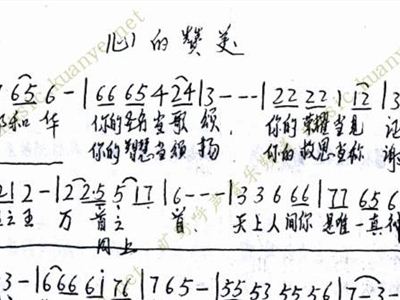 心的赞美
6 5 6 - | 6 6 6 5 4 2 4 | 3 - - - | 2 2 2 2 1 1 2 | 3
和 华 你的圣名当歌颂, 你的荣耀当见证
你的智慧当颂扬 你的救恩当称谢
2 1 2 - | 2 2·5 5 1 7 | 6 - - - | 3 3 6 6 6 | 7 7 6 5 6
之王 万首之首. 天上人间你是唯一真神
同上
3 - | 6 6 6 6 i 7 6 | 7 6 5 - | 3 5 5 3 5 5 5 6 | 7 - 3 -